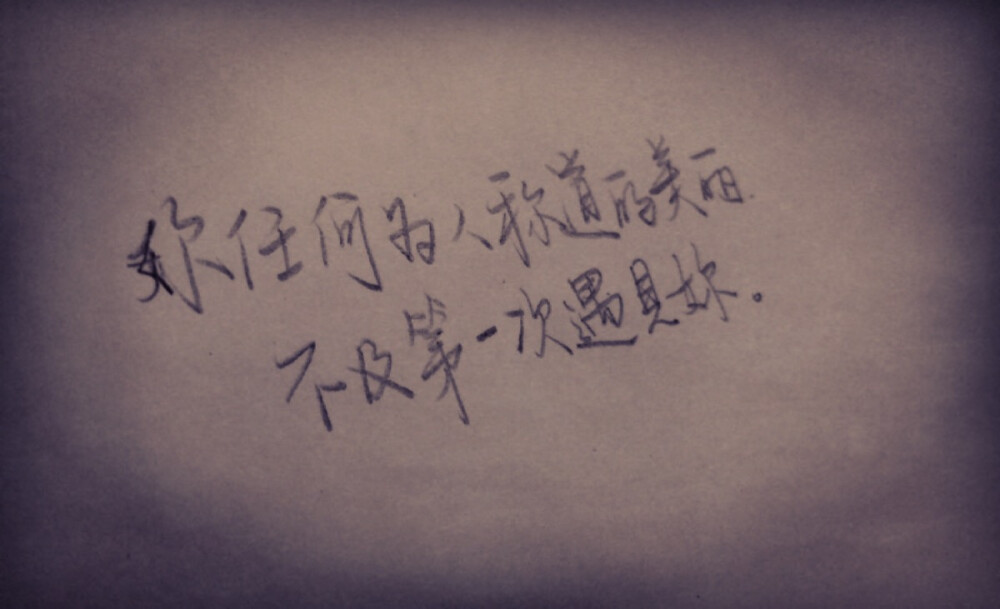 妳任何为人称道的美丽
不及第一次遇見妳。